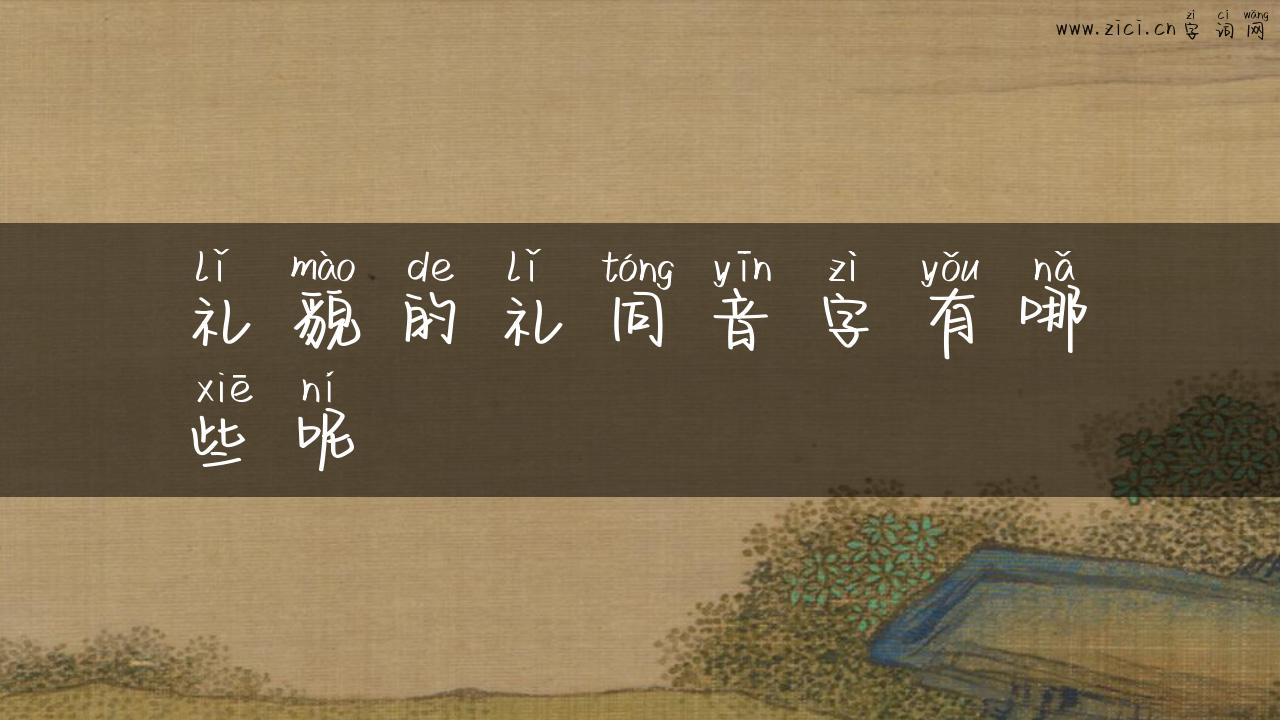 zì cí wǎng
www.zici.cn 字词网
lǐ mào de lǐ tóng yīn zì yǒu nǎ
礼貌的礼同音字有哪
xiē ní
些呢